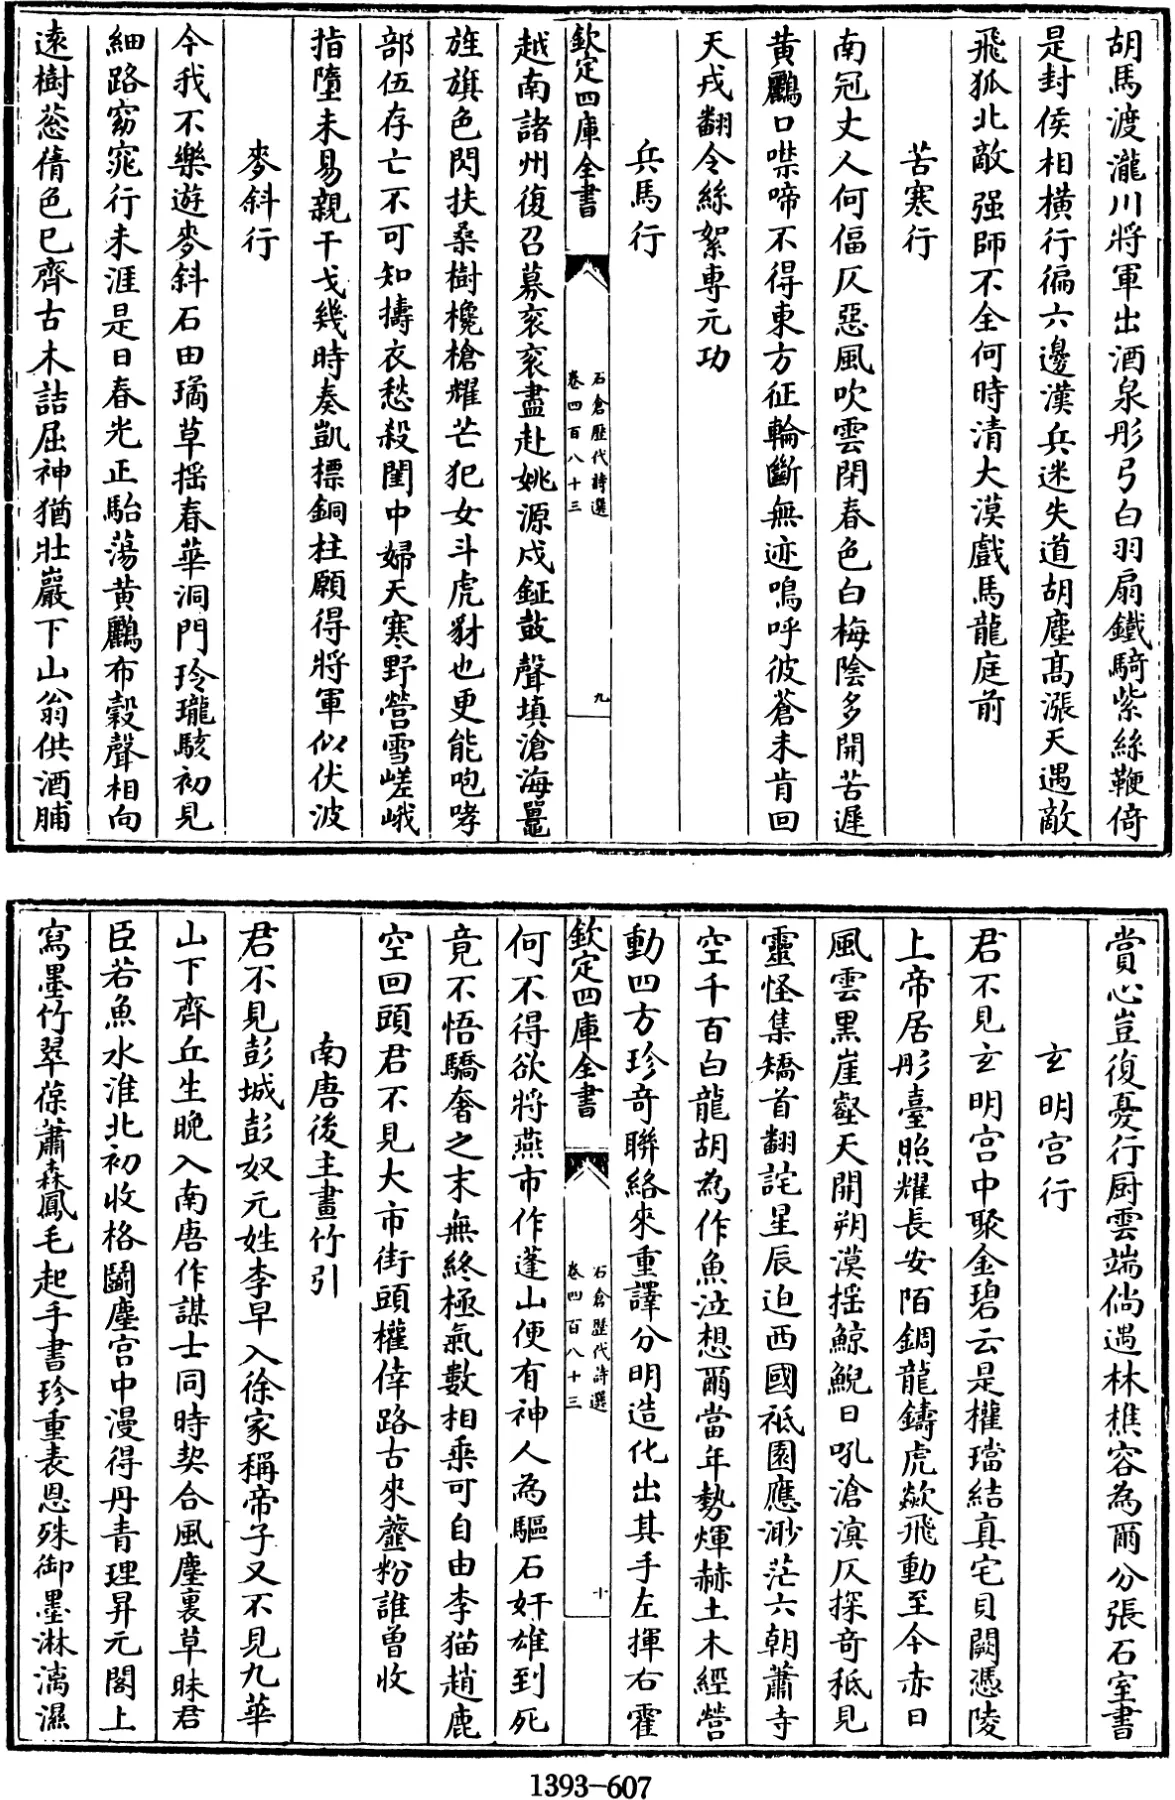 胡馬渡瀧川將軍出酒泉彤弓白羽扇鐵騎紫絲鞭倚
是封侯相橫行徧六邊漢兵迷失道胡塵高漲天遇敵
飛狐北敵强師不全何時清大漠戲馬龍庭前
苦寒行
南冠丈人何偪仄惡風吹雲閉春色白梅陰多開苦遲
黄鸝口噤啼不得東方征輪斷無迹嗚呼彼蒼未肯回
天戎翻令絲絮專元功
兵馬行
欽定四庫全書
石倉歷代詩選
卷四百八十三
九
越南諸州復召募衮衮盡赴姚源戍鉦鼓聲填滄海鼍
旌旗色閃扶桑樹欃槍耀芒犯女斗虎豺也更能咆哮
部伍存亡不可知擣衣愁殺閨中婦天寒野營雪嵯峨
指墮未易親干戈幾時奏凱標銅柱願得將軍似伏波
麥斜行
今我不樂遊麥斜石田璚草揺春華洞門玲瓏駭初見
細路窈窕行未涯是日春光正駘蕩黄鸝布穀聲相向
遠樹葱蒨色已齊古木詰屈神猶壯巖下山翁供酒脯
賞心豈復憂行厨雲端倘遇林樵容為爾分張石室書
玄明宫行
君不見玄明宫中聚金碧云是權璫結真宅貝闕憑陵
上帝居彤臺照耀長安陌鋼龍鑄虎歘飛動至今赤日
風雲黒崖壑天開朔漠揺鯨鯢日吼滄溟仄探奇秪見
靈怪集矯首翻詫星辰迫西國祇園應渺茫六朝蕭寺
空千百白龍胡為作魚泣想爾當年勢煇赫土木經營
動四方珍奇聯絡來重譯分明造化出其手左揮右霍
欽定四庫全書
石倉歷代詩選
卷四百八十三
十
何不得欲將燕市作蓬山便有神人為驅石奸雄到死
竟不悟驕奢之末無終極氣數相乘可自由李猫趙鹿
空回頭君不見大市街頭權倖路古來虀粉誰曾收
南唐後主畫竹引
君不見彭城彭奴元姓李早入徐家稱帝子又不見九華
山下齊丘生晚入南唐作謀士同時契合風塵裏草昧君
臣若魚水淮北初收格鬭塵宫中漫得丹青理昇元閣上
寫墨竹翠葆蕭森鳳毛起手書珍重表恩殊御墨淋漓濕
1393-607